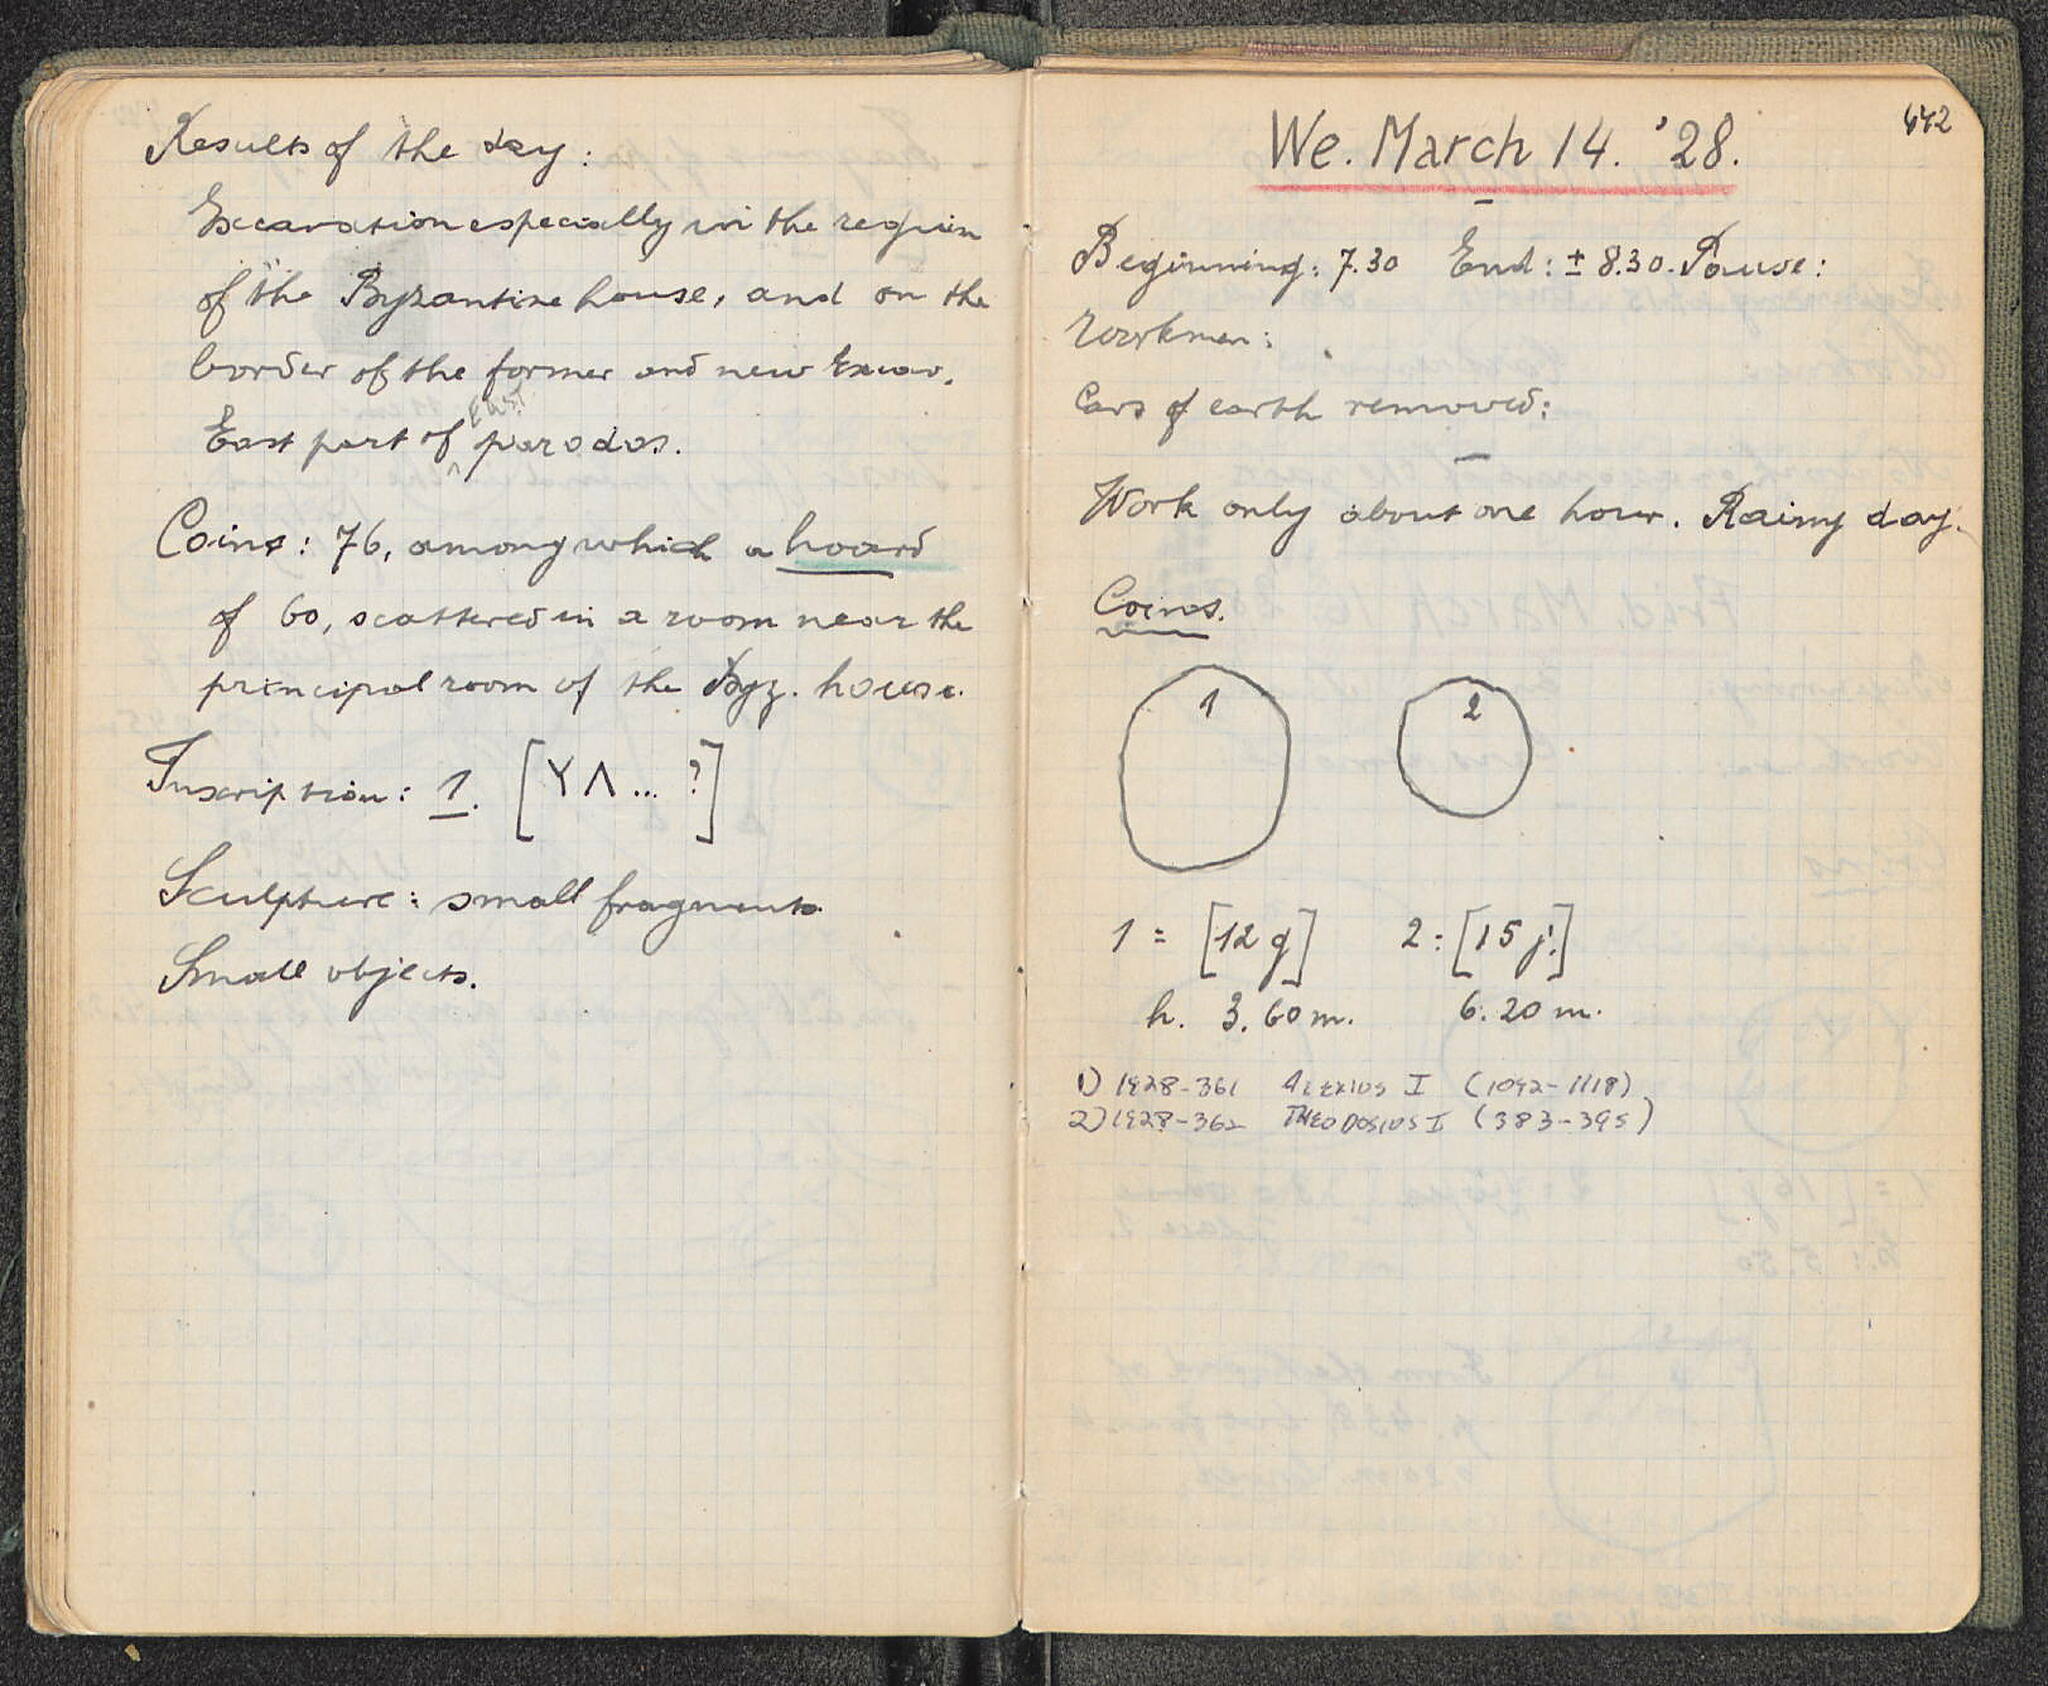 Results of the day:
Excavation especially in the region
of the Byzantine house, and on the
border of the former and new Excav.
East
East part of ^ parodos.
Coins: 76, among which a hoard
of 60, scattered in a room near the
principal room of the Byz. house.
Inscription: 1. [ΥΛ... ?]
Sculpture: small fragments.
Small objects.
442
We. March 14. '28.
Beginning: 7.30 End: ± 8.30. Pause:
Workmen:
Cars of earth removed:
Work only about one hour. Rainy day.
Coins.
1 2
1 = [12 g] 2: [15 j!]
h. 3.60 m. 6.20 m.
1) 1928-361 ALEXIUS I (1092-1118)
2) 1928-362 THEODOSIUS I (383-395)